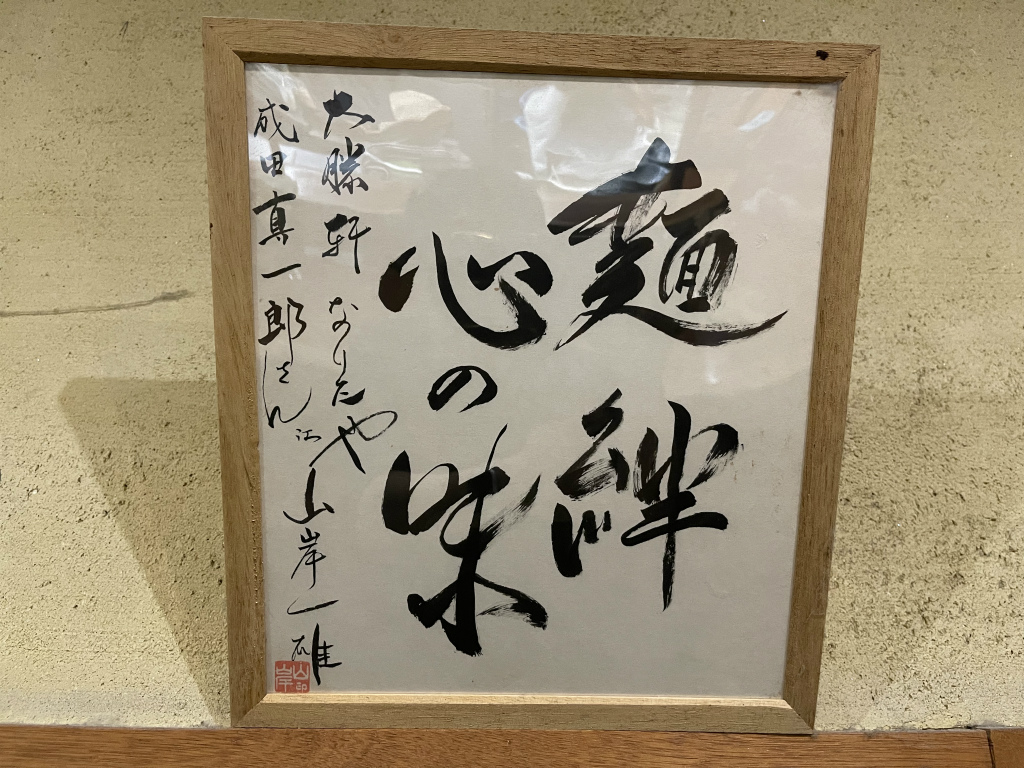 麺絆
心の味
大勝軒 なりたや
山岸一雄
成田真一郎さん江
山岸印